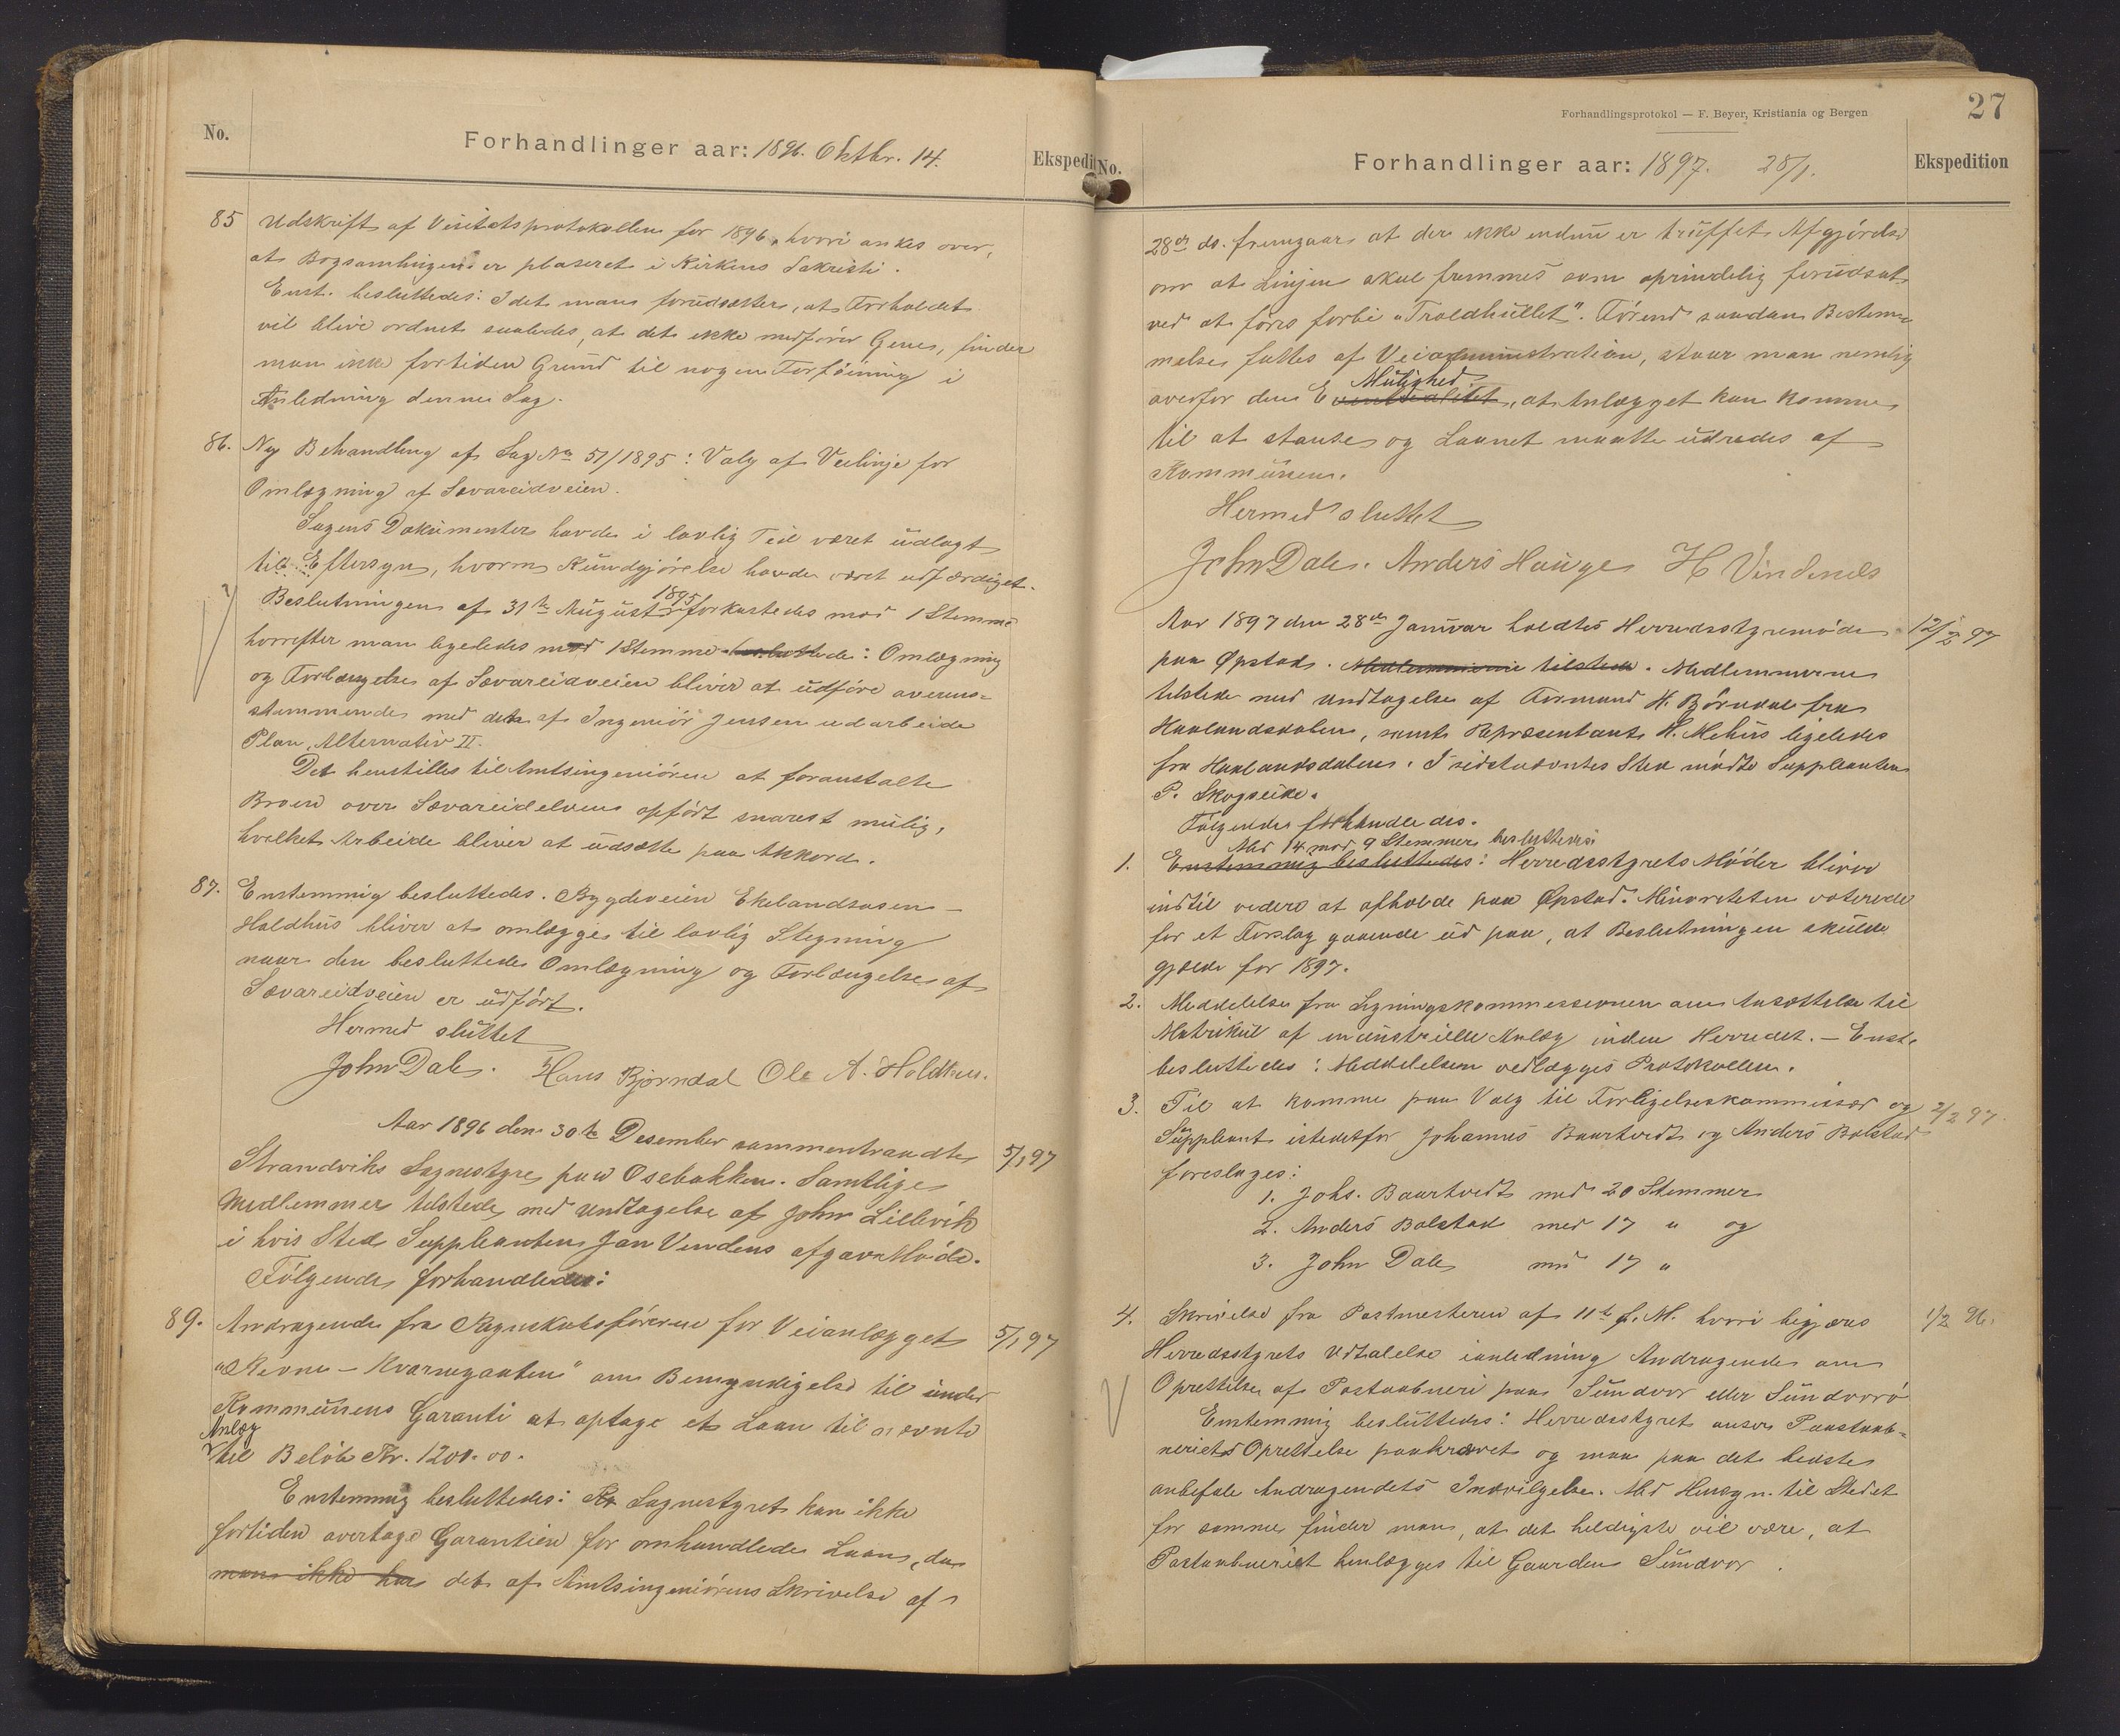 No.
Forhandlinger aar: 1896. Oktbr. 14.
Ekspedit
85 Udskrift af Visitatsprotokollen for 1896, hvori ankes over,
at Bogsamlingen er plaseret i Kirkens Sakristi.
Enst. besluttedes: Idet man forudsætter, at Forholdet
vil blive ordnet saaledes, at det ikke medfører Gener, finder
man ikke fortiden Grund til nogen Forføining i
Anledning denne Sag.
86. Ny Behandling af Sag No 51/1895: Valg af Veilinje for
Omlægning af Sævareidveien.
Sagens Dokumenter havde i lovlig Tid været udlagt
til Eftersyn, hvorom Kundgjørelse havde været udfærdiget.
Beslutningen af 31te August 1895 forkastedes mod 1 Stemme
hvorefter man ligeledes mod 1 Stemme besluttede: Omlægning
og Forlængelse af Sævareidveien bliver at udføre overens-
stemmende med den af Ingeniør Jensen udarbeide
Plan, Alternativ II.
Det henstilles til Amtsingeniøren at foranstalte
Broen over Sævareidelven opført snarest mulig,
hvilket Arbeide bliver at udsætte paa Akkord.
87. Enstemmig besluttedes. Bygdeveien Ekelandsosen -
Holdhus bliver at omlægges til lovlig Stegning
naar den besluttede Omlægning og Forlængelse af
Sævareidveien er udført.
Hermed sluttet
John Dale. Hans Bjørndal Ole A. Holdhus.
Aar 1896 den 30te Desember sammentraadte 5/1 97
Strandviks Sognestyre paa Osebakken. Samtlige
Medlemmer tilstede med Undtagelse af John Lillevik
i hvis Sted Suppleanten Jan Vendens afgav Møde.
Følgende forhandledes:
89. Andragende fra Regnskabsføreren for Veianlægget 5/1 97
"Revne - Kvarnganten" om Bemyndigelse til under
Kommunens Garanti at optage et Laan til nævnte
Anlæg
til Beløb Kr. 1200.00.
Enstemmig besluttedes: Sognestyret kan ikke
fortiden overtage Garantien for omhandlede Laan, da
man ikke har det af Amtsingeniørens Skrivelse af
Forhandlingsprotokol — F. Beyer, Kristiania og Bergen
27
No.
Forhandlinger aar: 1897. 28/1.
Ekspedition
28de ds. fremgaar, at der ikke endnu er truffet Afgjørelse
om at Linjen skal fremmes som oprindelig forudsat
ved at føres forbi "Troldhullet". Førend saadan Bestem-
melse fattes af Veiadministration, staar man nemlig
Mulighed
overfor den Eventualitet, at Anlægget kan komme
til at stanse og Laanet maatte udredes af
Kommunen.
Hermed sluttet
John Dale. Anders Hauge H Vindenes
Aar 1897 den 28de Januar holdtes Herredsstyremøde 12/2 97
paa Øpstad. Medlemmerne tilstede. Medlemmerne
tilstede med Undtagelse af Formand H. Bjørndal fra
Haalandsdalen, samt Repræsentant H. Mehus ligeledes
fra Haalandsdalen. I sidstnævntes Sted mødte Suppleanten
P. Skogseide.
Følgende forhandledes.
Med 14 mod 9 Stemmer besluttedes
1. Enstemmig besluttedes: Herredsstyrets Møder bliver
indtil videre at afholde paa Øpstad. Minoriteten voterede
for et Forslag gaaende ud paa, at Beslutningen skulde
gjælde for 1897.
2. Meddelelse fra Ligningskommissionen om Ansættelse til
Matrikul af industrielle Anlæg inden Herredet. - Enst.
besluttedes: Meddelelsen vedlægges Protokollen.
3. Til at komme paa Valg til Forligelseskommissær og 2/2 97.
Suppleant istedetfor Johannes Baartvedt og Anders Bolstad
foreslages:
1. Johs. Baartvedt med 20 Stemmer
2. Anders Bolstad med 17 " og
3. John Dale med 17 "
4. Skrivelse fra Postmesteren af 11te f. M. hvori begjæres 1/2 96.
Herredsstyrets Udtalelse ianledning Andragende om
Oprettelse af Postaabneri paa Sundvor eller Sundvorø
Enstemmig besluttedes: Herredsstyret anser Postaab-
neriets Oprettelse paakrævet og maa paa det bedste
anbefale Andragendets Indvilgelse. Med Hensyn til Stedet
for samme finder man, at det heldigste vil være, at
Postaabneriet henlægges til Gaarden Sundvor.